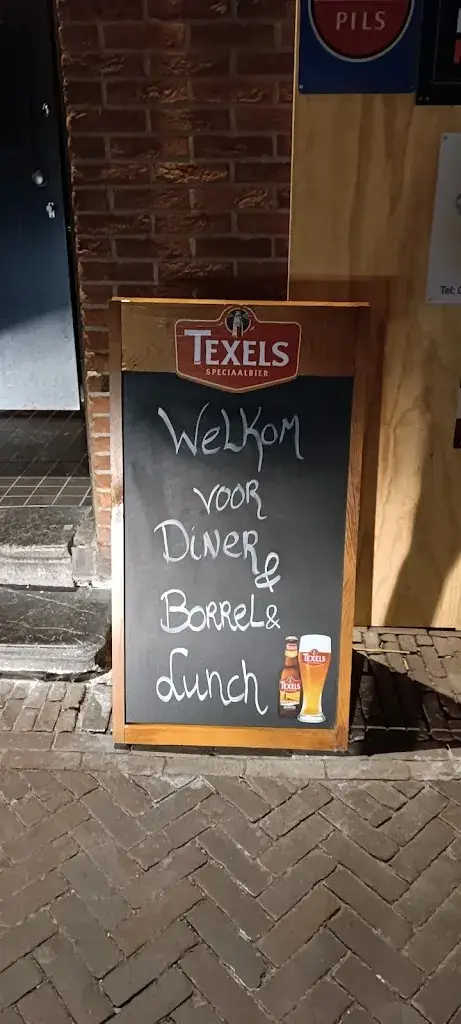 PILS
Tel:
TEXELS
SPECIAALBIER
WELKOM
VOOR
DINER
&
BORREL &
Lunch
TEXELS
TEXELS